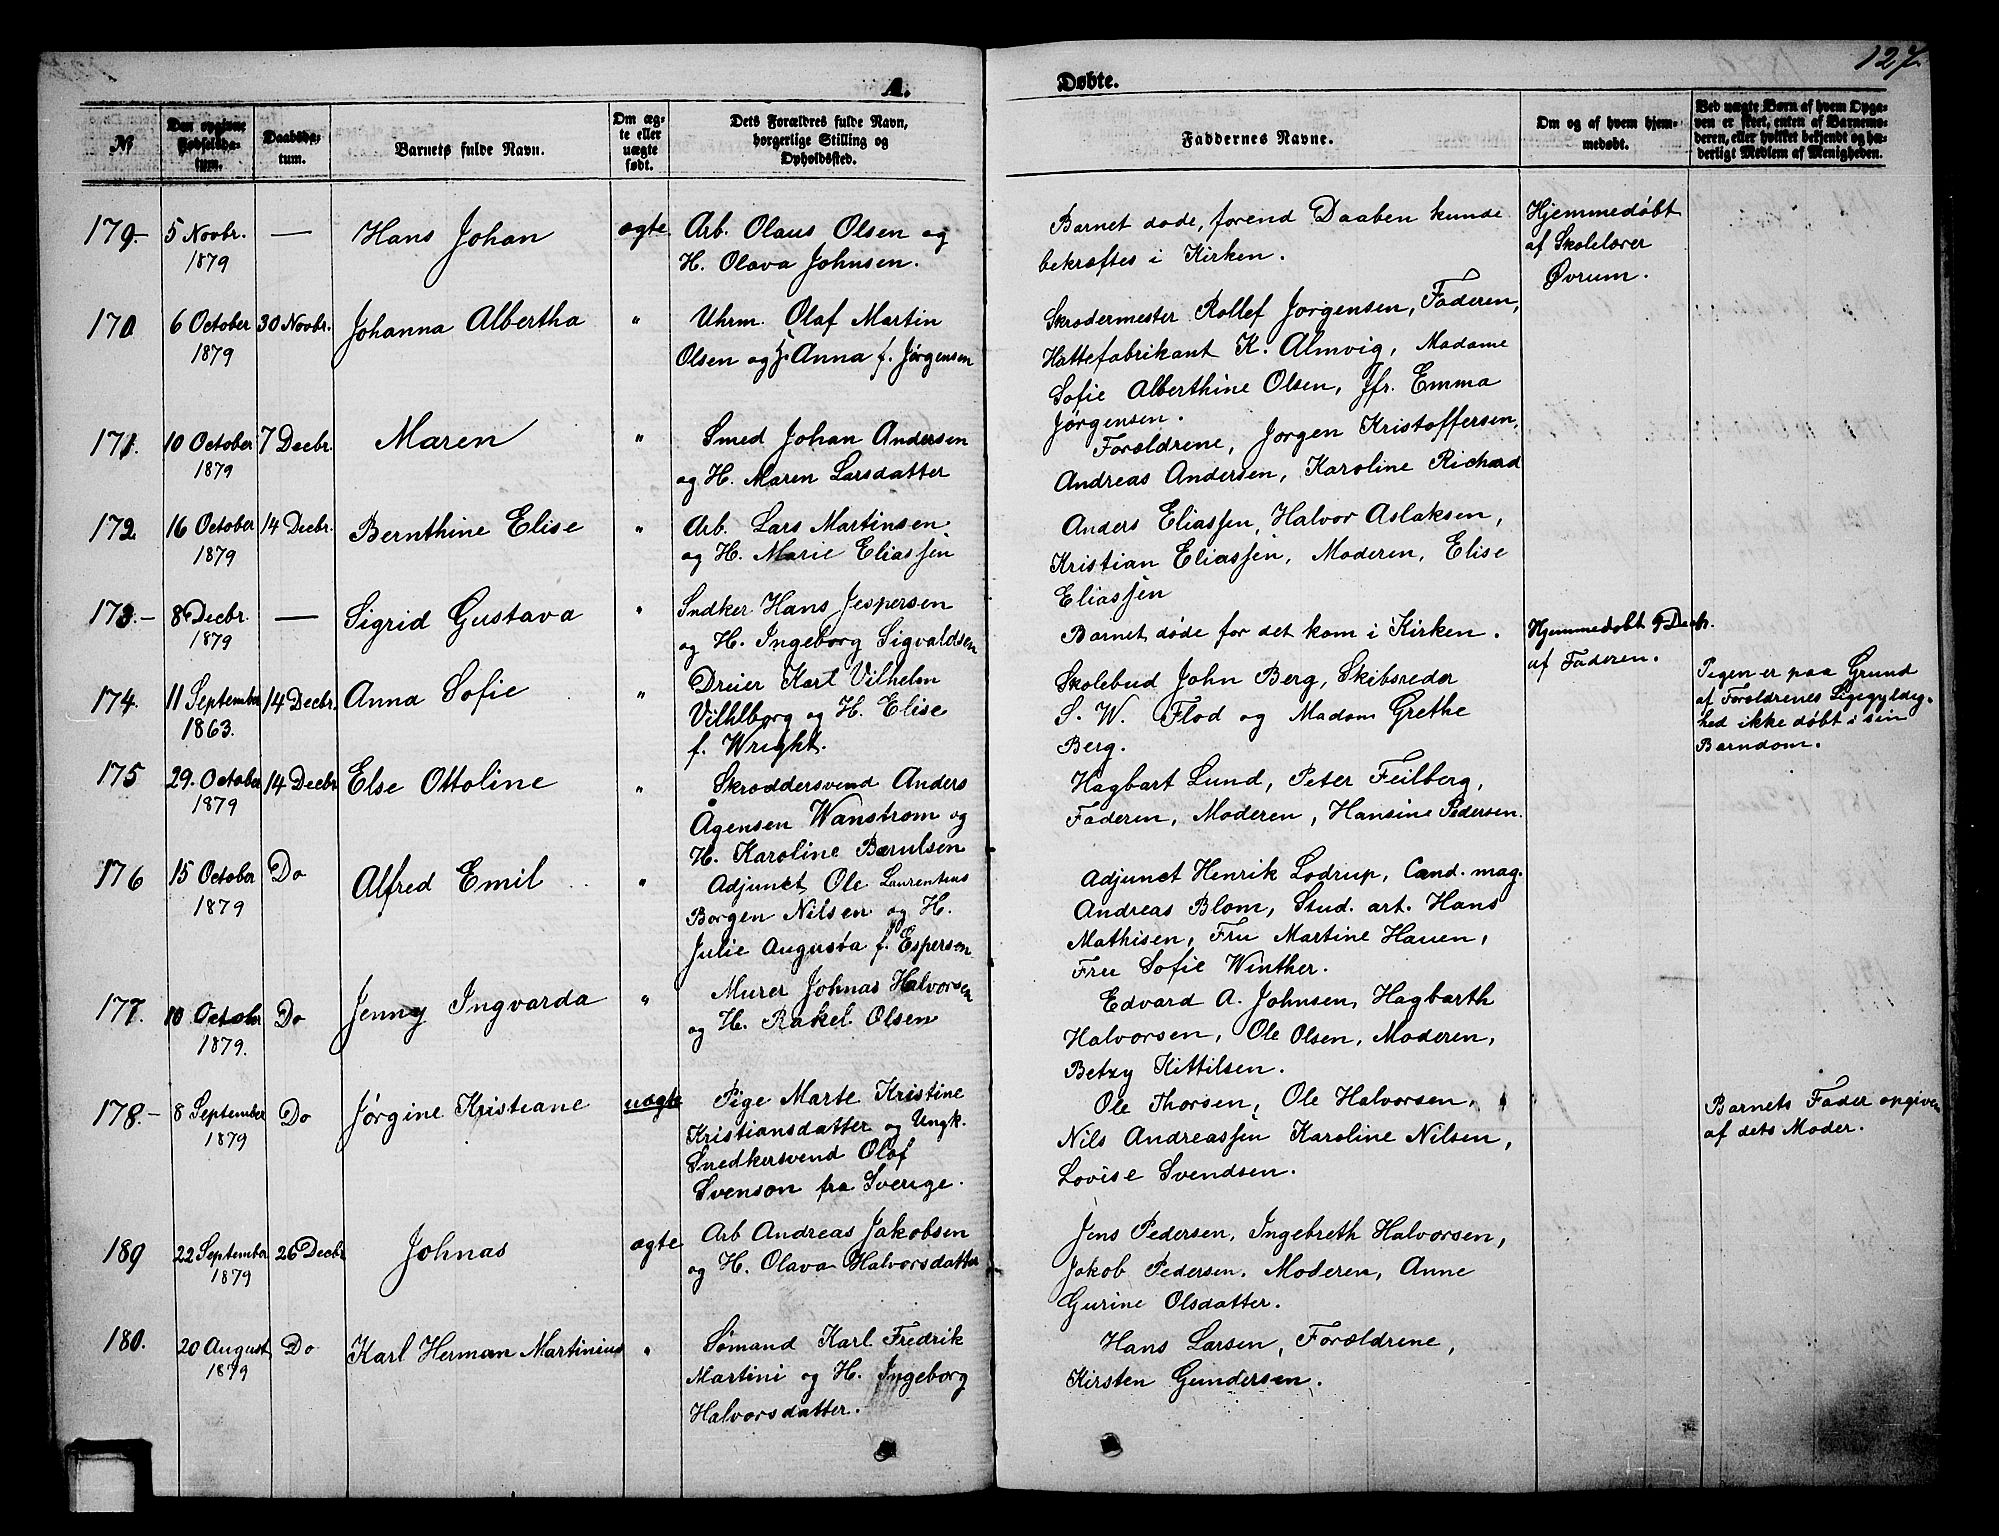 127
A.
Døbte.
№
Den opgivne Fødselsdatum.
Daabsdatum.
Barnets fulde Navn.
Om ægte eller uægte født.
Dets Forældres fulde Navn, borgerlige Stilling og Opholdssted.
Faddernes Navne.
Om og af hvem hjemmedøbt.
Ved uægte Børn af hvem Opgaven er skeet, enten af Barnemoderen, eller hvilket bekjendt og hæderligt Medlem af Menigheden.
179.- 5 Novbr. 1879 — Hans Johan ægte
Arb. Olaus Olsen og
H. Olava Johnsen.
Barnet døde, førend Daaben kunde
bekræftes i Kirken.
Hjemmedøbt
af Skolelærer
Øvrum.
170 6 October 1879 30 Novbr. Johanna Albertha "
Uhrm. Olaf Martin
Olsen og H. Anna f. Jørgensen
Skrædermester Rollef Jørgensen, Faderen,
Hattefabrikant K. Almvig, Madame
Sofie Alberthine Olsen, Jfr. Emma
Jørgensen.
171. 10 October 1879 7 Decbr. Maren "
Smed Johan Andersen
og H. Maren Larsdatter
Forældrene, Jørgen Kristoffersen,
Andreas Andersen, Karoline Richard
172 16 October 1879 14 Decbr. Bernthine Elise "
Arb. Lars Martinsen
og H. Marie Eliassen
Anders Eliassen, Halvor Aslaksen,
Kristian Eliassen, Moderen, Elise
Eliassen
173.- 8 Decbr. 1879 — Sigrid Gustava "
Sndker Hans Jespersen
og H. Ingeborg Sigvaldsen
Barnet døde før det kom i Kirken.
Hjemmedøbt 9 Decbr.
af Faderen.
174. 11 September 1863. 14 Decbr. Anna Sofie "
Dreier Karl Vilhelm
Vilhlborg og H. Elise
f. Wright.
Skolebud John Berg, Skibsreder
S. W. Flod og Madam Grethe
Berg.
Pigen er paa Grund
af Forældrenes Ligegyldig-
hed ikke døbt i sin
Barndom.
175 29. October 1879 14 Decbr Else Ottoline "
Skræddersvend Anders
Ågensen Wanstrøm og
H. Karoline Bærulsen
Hagbart Lund, Peter Feilberg,
Faderen, Moderen, Hansine Pedersen.
176 15 October 1879 Do Alfred Emil "
Adjunct Ole Laurentius
Borgen Nilsen og H.
Julie Augusta f. Espersen
Adjunct Henrik Lødrup, Cand. mag.
Andreas Blom, Stud. art. Hans
Mathisen, Fru Martine Hauen,
Fru Sofie Winther.
177. 10 October 1879. Do Jenny Ingvarda "
Murer Johnas Halvorsen
og H. Rakel Olsen
Edvard A. Johnsen, Hagbarth
Halvorsen, Ole Olsen, Moderen,
Betzy Kittilsen.
178.- 8 September 1879 Do Jørgine Kristiane uægte
Pige Marte Kristine
Kristiansdatter og Ungk.
Snedkersvend Olof
Svenson fra Sverige.
Ole Thorsen, Ole Halvorsen,
Nils Andreassen Karoline Nilsen,
Lovise Svendsen.
Barnets Fader opgiven
af dets Moder.
189 22 September 1879 26 Decbr Johnas ægte
Arb Andreas Jakobsen
og H. Olava Halvorsdatter
Jens Pedersen, Ingebreth Halvorsen,
Jakob Pedersen, Moderen, Anne
Gurine Olsdatter.
180. 20 August 1879 Do Karl Herman Martinius "
Sømand Karl Fredrik
Martini og H. Ingeborg
Halvorsdatter.
Hans Larsen, Forældrene,
Kirsten Gundersen.